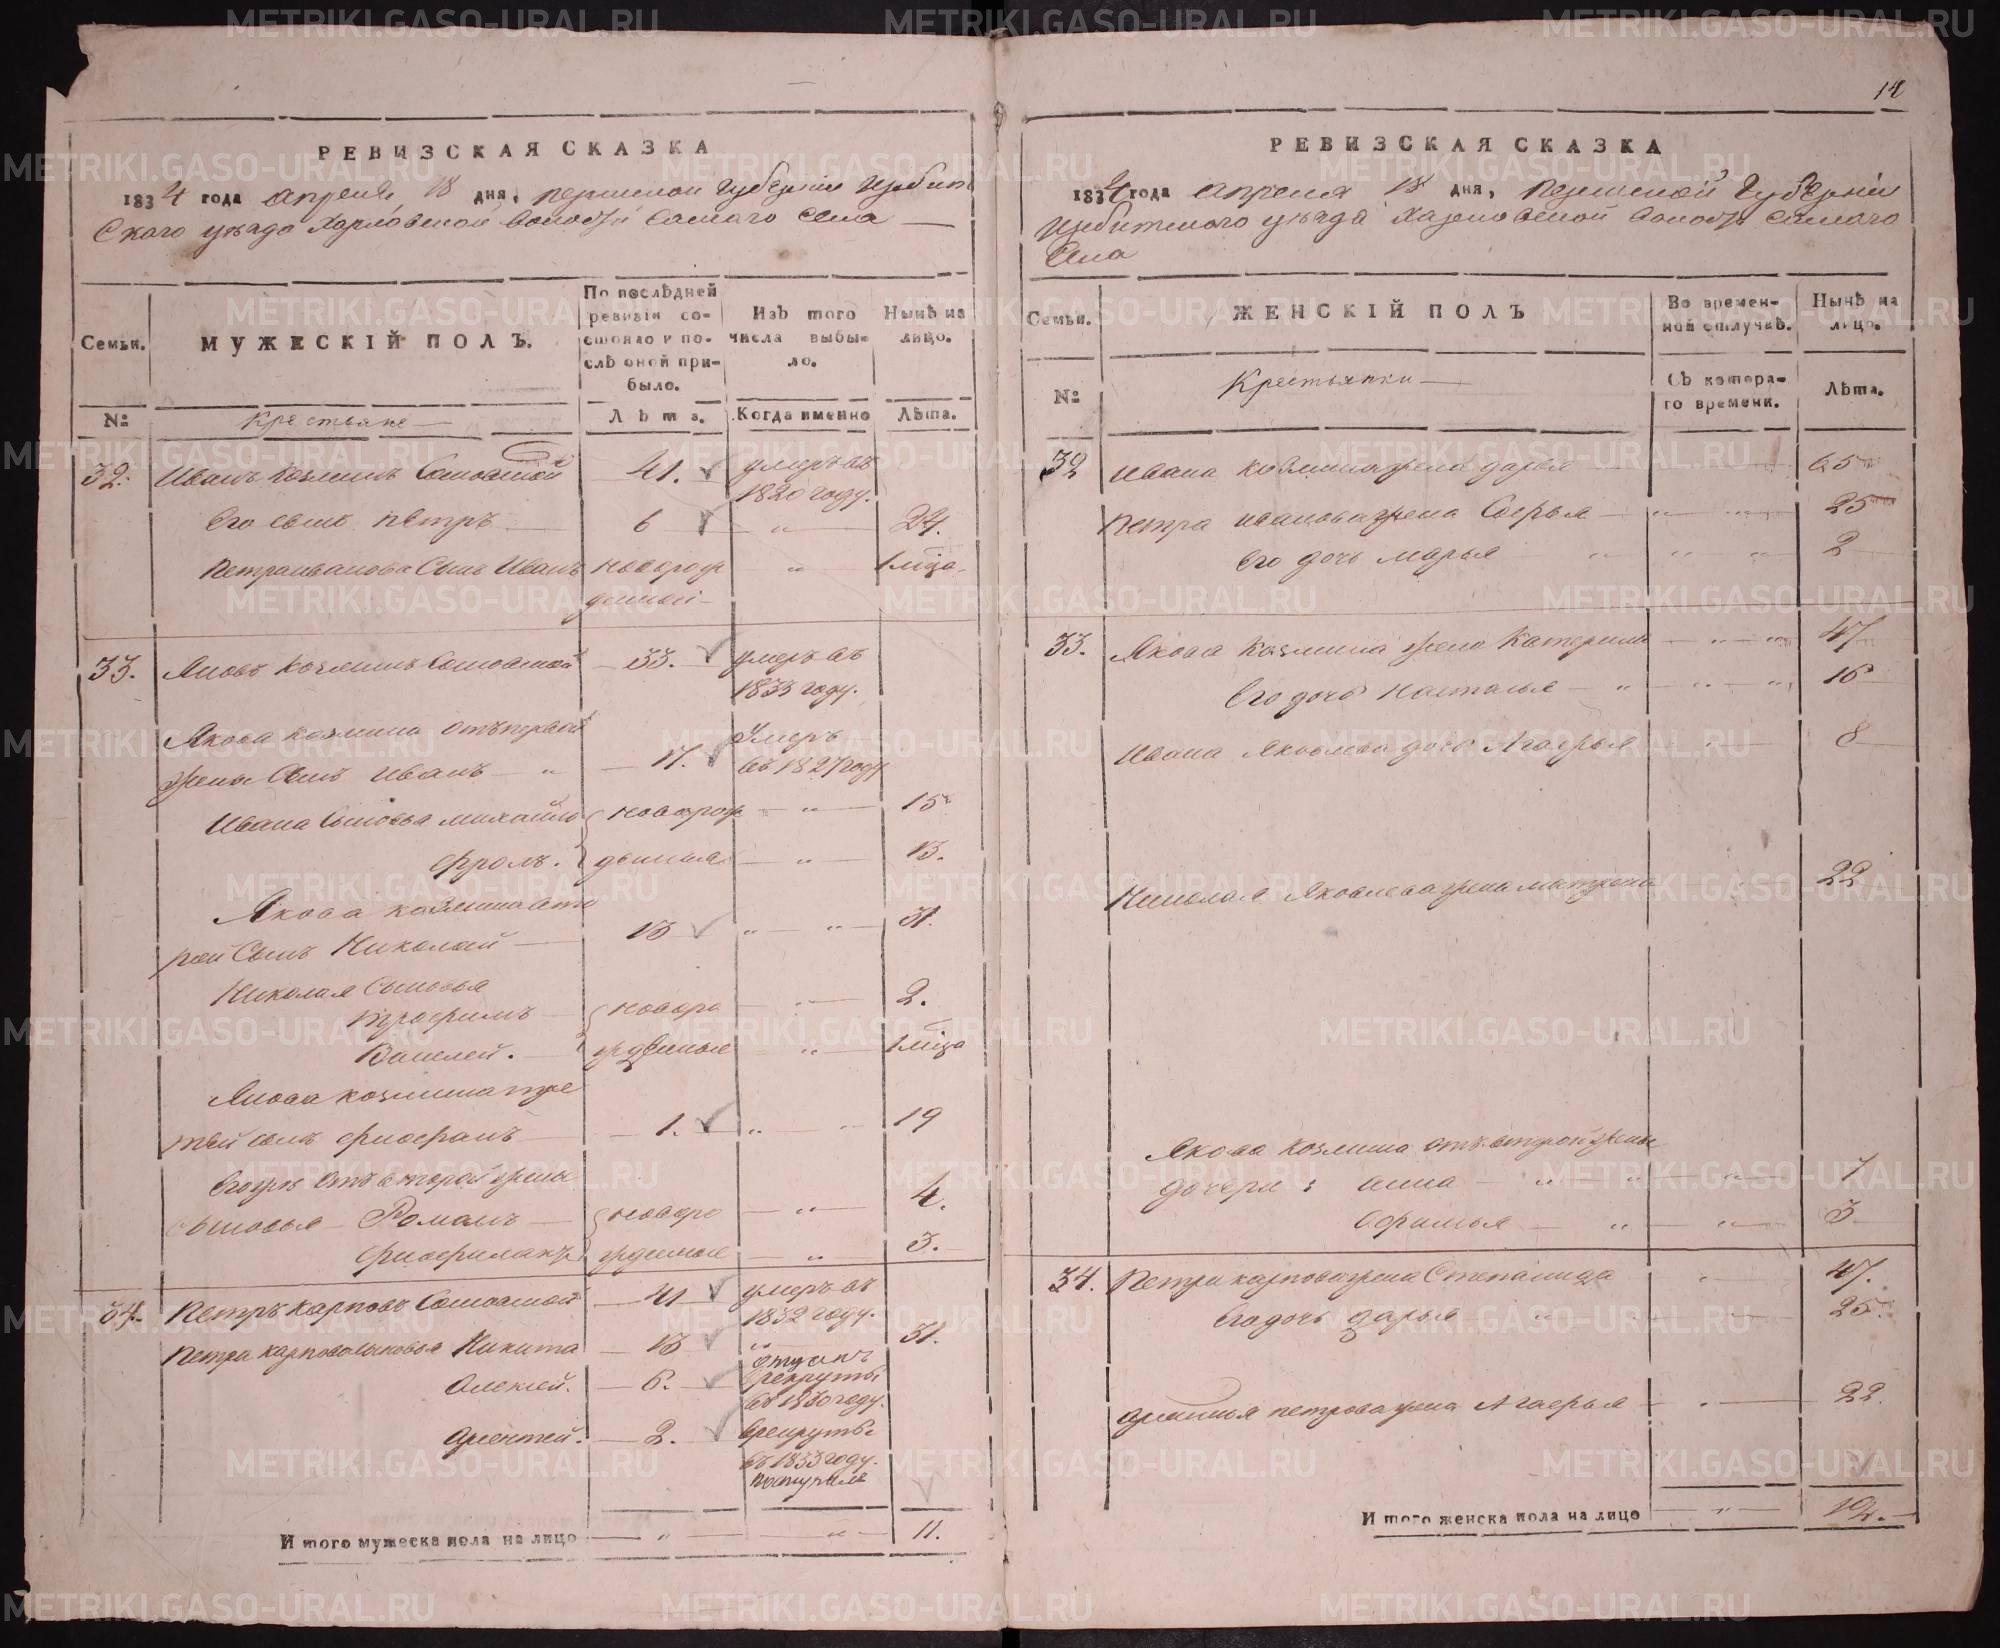 РЕВИЗСКАЯ СКАЗКА
1834 года апреля 18 дня, пермской губернии Ирбит
Скаго уезда Харловской волости самаго села
Семьи.
МУЖЕСКІЙ ПОЛЪ.
По послѣдней
ревизіи со-
стояло и по-
слѣ оной при-
было.
Изъ того
числа выбы-
ло.
Нынѣ на
лицо.
№
Крестьяне
Лѣта.
Когда именно
Лѣта.
32. Иванъ Козминъ 41. умеръ въ
1820 году.
Его сынъ петръ 6 „ 24.
Петра иванова Сынъ Иванъ новорож „ 1 мца
денной
33. Яковъ Козминъ 33. умеръ въ
1833 году.
Якова козмина отъ первой Умеръ
жены Сынъ иванъ „ 17. въ 1827 году
Ивана Сыновья михайло новорож „ 15
фролъ. денныя „ 13.
Якова козмина вто
рой Сынъ Николай 13 „ „ 31.
Николая Сыновья
трофимъ новоро „ 2.
жденные „ 1 мца
Якова козмина тре
тей сынъ 1. „ „ 19
Егожъ отъ второй жены 4.
сыновья Романъ новоро „
жденные „ 3.
34. Петръ карповъ 41 умеръ въ
1832 году.
Петра карпова сыновья Никита 13 „ 31.
Алексей. 6. рекруты
въ 1830 году.
2. врекруты
въ 1833 году.
поступилъ
И того мужеска пола на лицо „ „ 11.
14
РЕВИЗСКАЯ СКАЗКА
1834 года апреля 18 дня, пермской губерніи
ирбитского уезда Харловской волости самаго
села
Семьи.
ЖЕНСКІЙ ПОЛЪ
Во времен-
ной отлучкѣ.
Нынѣ на
лицо.
№
Крестьянки
Съ котора-
го времени.
Лѣта.
32 Ивана козмина жена дарья 65
Петра иванова жена Софья „ „ 25
Его дочь марья „ „ „ 2
33. Якова Козмина жена Катерина „ „ 47
Его дочь настасья „ „ „ 16
Ивана Яковлева дочь Агафья „ 8
Николая Яковлева жена матрена 22
Якова козмина отъ второй жены
дочери: анна „ „ „ 7
Афимья „ „ 3
34. Петра карпова жена Степанида „ 47.
Его дочь дарья „ „ 25.
петрова жена Агафья „ 22.
И того женска пола на лицо „ 12.
METRIKI.GASO-URAL.RU